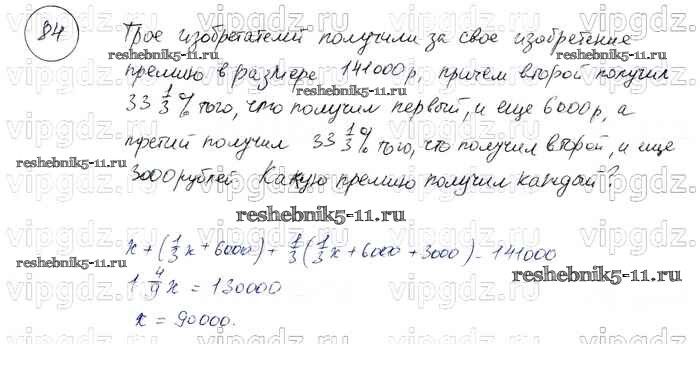 84
Трое изобретателей получили за свое изобретение
премию в размере 141000 р, причем второй получил
33 1/3 % того, что получил первый, и еще 6000 р, а
третий получил 33 1/3 % того, что получил второй, и еще
3000 рублей. Какую премию получил каждый?
x + (1/3 x + 6000) + 1/3 (1/3 x + 6000 + 3000) = 141000
1 4/9 x = 130000
x = 90000.
vipgdz.com
reshebnik5-11.ru